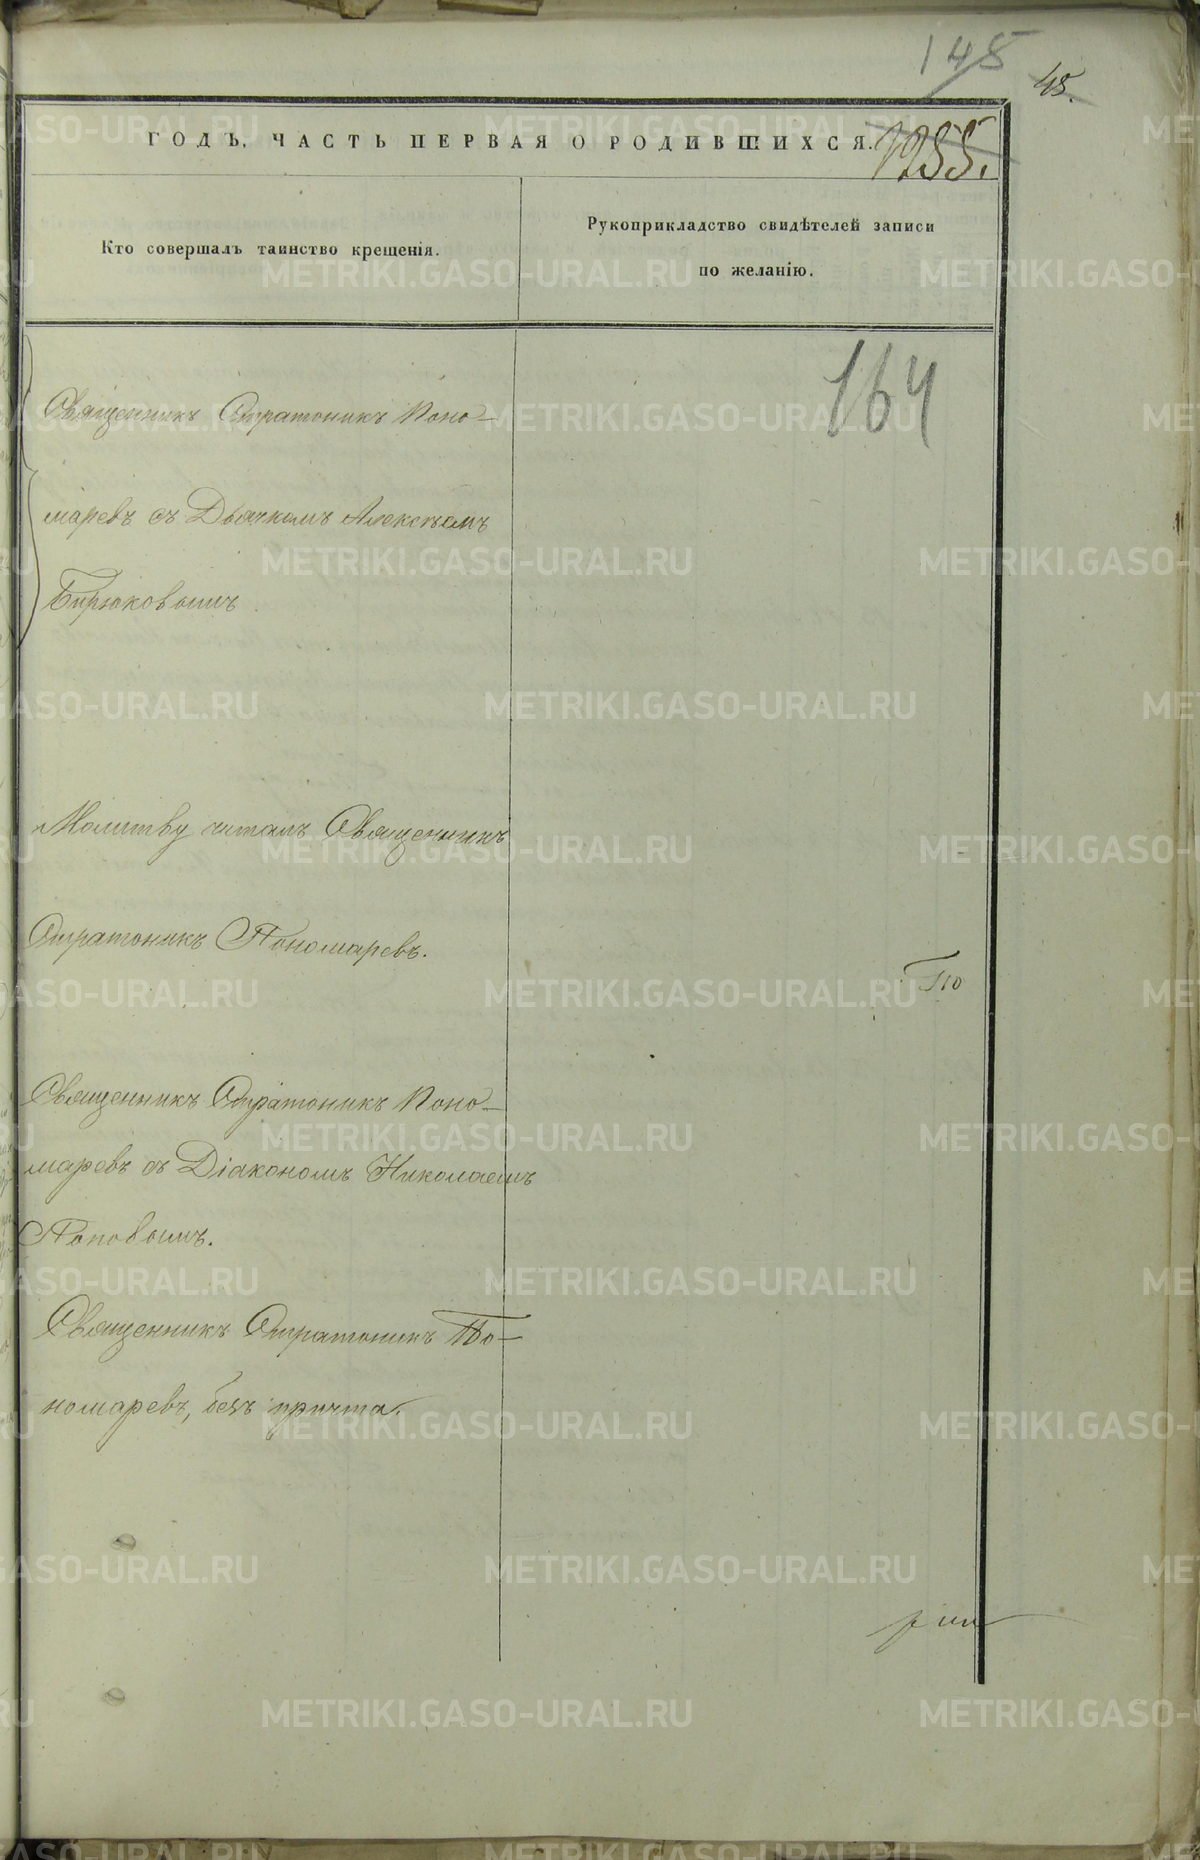 148
48.
ГОДЪ. ЧАСТЬ ПЕРВАЯ О РОДИВШИХСЯ.
1255.
Кто совершалъ таинство крещенія.
Рукоприкладство свидѣтелей записи
по желанію.
164
Священникъ Стратоникъ Поно-
маревъ съ Дьячкомъ Алексѣемъ
Бирюковымъ
Молитву читалъ Священникъ
Стратоникъ Пономаревъ.
По
Священникъ Стратоникъ Поно-
маревъ съ Діакономъ Николаемъ
Поповымъ.
Священникъ Стратоникъ По-
номаревъ, безъ причта.
METRIKI.GASO-URAL.RU